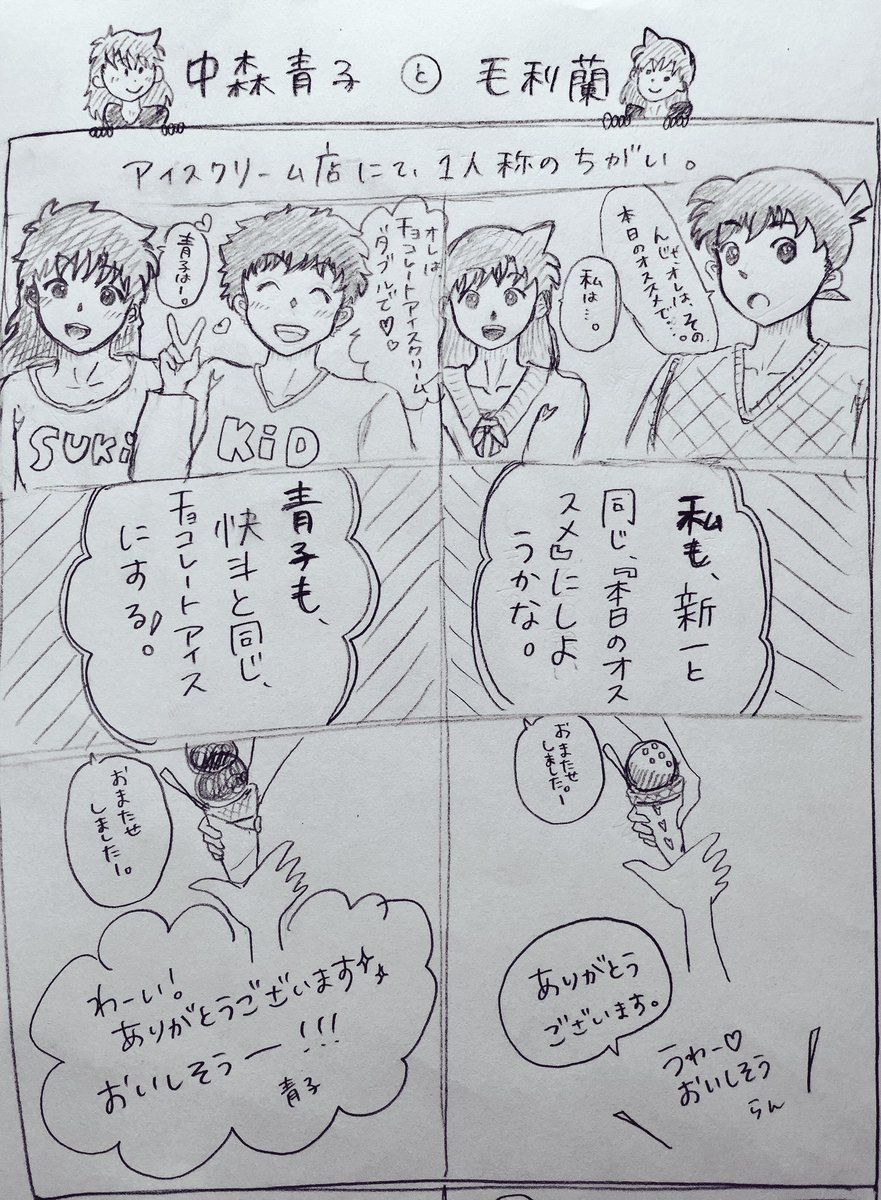 中森青子と毛利蘭
アイスクリーム店にて、1人称のちがい。
本日のオススメで…。
んじゃオレは、その
私は…。
オレは
チョコレートアイスクリーム
ダブルで♡♡
青子はー。
SUKi
KiD
私も、新一と
同じ、『本日のオス
スメ』にしよ
うかな。
青子も、
快斗と同じ、
チョコレートアイス
にする!。
おまたせ
しましたー。
ありがとう
ございます。
うわー♡
おいしそう
らん
おまたせ
しましたー。
わーい!
ありがとうございます
おいしそうー!!!
青子